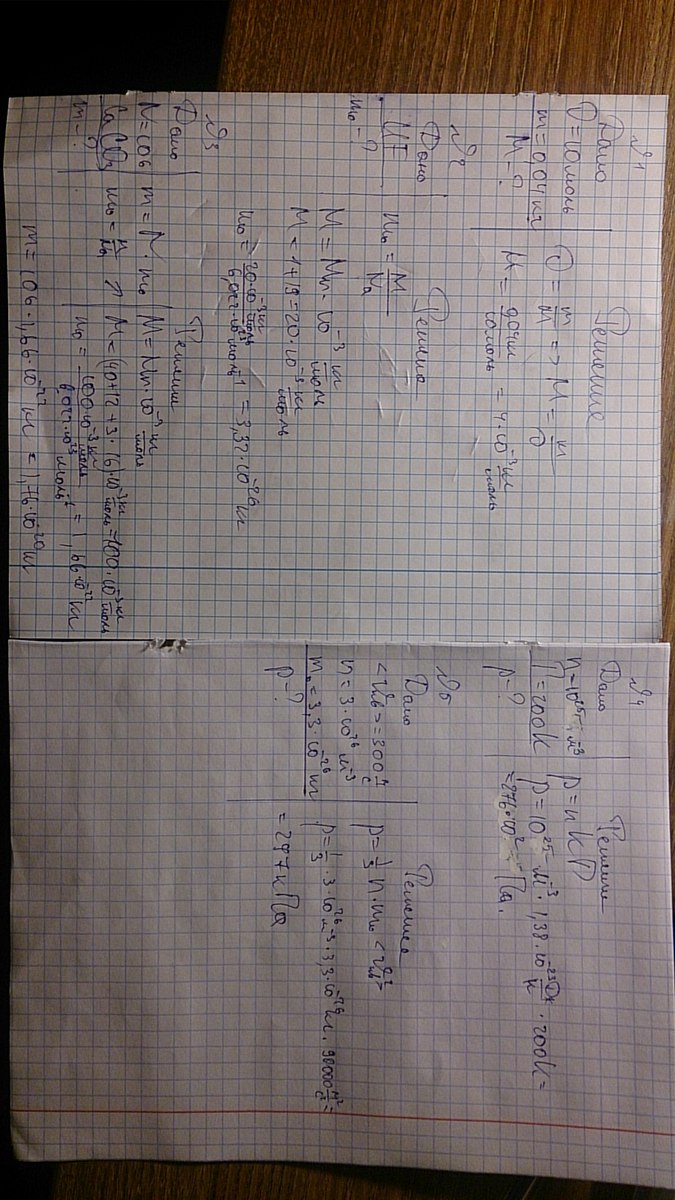 №1
Дано
ν = 10 моль
m = 0,04 кг
M - ?
Решение
ν = m/M => M = m/ν
M = 0,04 кг/10 моль = 4·10⁻³ кг/моль
№2
Дано
HF
m₀ - ?
Решение
m₀ = M/Nₐ
M = Mr·10⁻³ кг/моль
M = 1+19=20·10⁻³ кг/моль
m₀ = 20·10⁻³ кг/моль / 6,022·10²³ моль⁻¹ = 3,32·10⁻²⁶ кг
№3
Дано
N = 106
CaCO₃
m - ?
Решение
m = N·m₀
m₀ = M/Nₐ
M = Mr·10⁻³ кг/моль
M = (40+12+3·16)·10⁻³ кг/моль = 100·10⁻³ кг/моль
m₀ = 100·10⁻³ кг/моль / 6,022·10²³ моль⁻¹ = 1,66·10⁻²² кг
m = 106·1,66·10⁻²² кг = 1,76·10⁻²⁰ кг
№4
Дано
n = 10²⁵ м⁻³
T = 200K
p - ?
Решение
p = nkT
p = 10²⁵ м⁻³·1,38·10⁻²³ Дж/К · 200K =
= 276·10² Па.
№5
Дано
= 300 м/с
n = 3·10²⁶ м⁻³
m₀ = 3,3·10⁻²⁶ кг
p - ?
Решение
p = 1/3 n·m₀
p = 1/3·3·10²⁶ м⁻³·3,3·10⁻²⁶ кг· 90000 м²/с² =
= 297 кПа